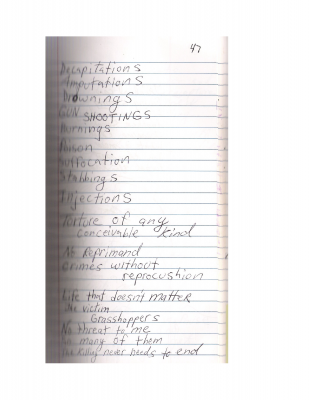 47
Decapitations
Amputations
Drownings
GUN SHOOTINGS
Burnings
Poison
Suffocation
Stabbings
Injections
Torture of any
conceivable kind
No Reprimand
Crimes without
reprocushion
Life that doesn't matter
The victim
Grasshoppers
No threat to me
So many of them
The killing never needs to end